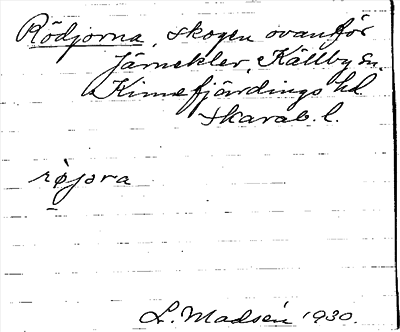 Rödjorna, skogen ovanför
Järneklev, Källby sn.
Kinnefjärdings hd.
Skarab. l.
røjora
L. Madsén 1930.